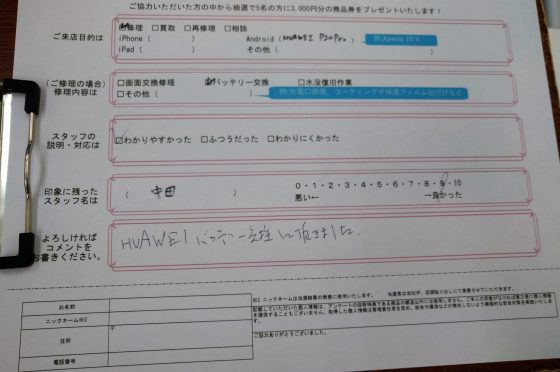 ご協力いただいた方の中から抽選で5名の方に3,000円分の商品券をプレゼントいたします!
ご来店目的は
修理 □買取 □再修理 □相談
iPhone ( ) Android ( HUAWEI P20Pro ) 例:Xperia 10 Ⅱ
iPad ( ) その他 ( )
(ご修理の場合)
修理内容は
□画面交換修理 バッテリー交換 □水没復旧作業
□その他 ( ) 例:充電口修理、コーティングや保護フィルム貼付けなど
スタッフの
説明・対応は
□わかりやすかった □ふつうだった □わかりにくかった
印象に残った
スタッフ名は
( 中田 ) 0・1・2・3・4・5・6・7・8・9・10
悪い← →良かった
よろしければ
コメントを
お書きください。
HUAWEI バッテリー
お名前
ニックネーム※2
住所
〒
電話番号
※2 ニックネームは当選結果の発表に使用いたします。
ご協力ありがとうございました。